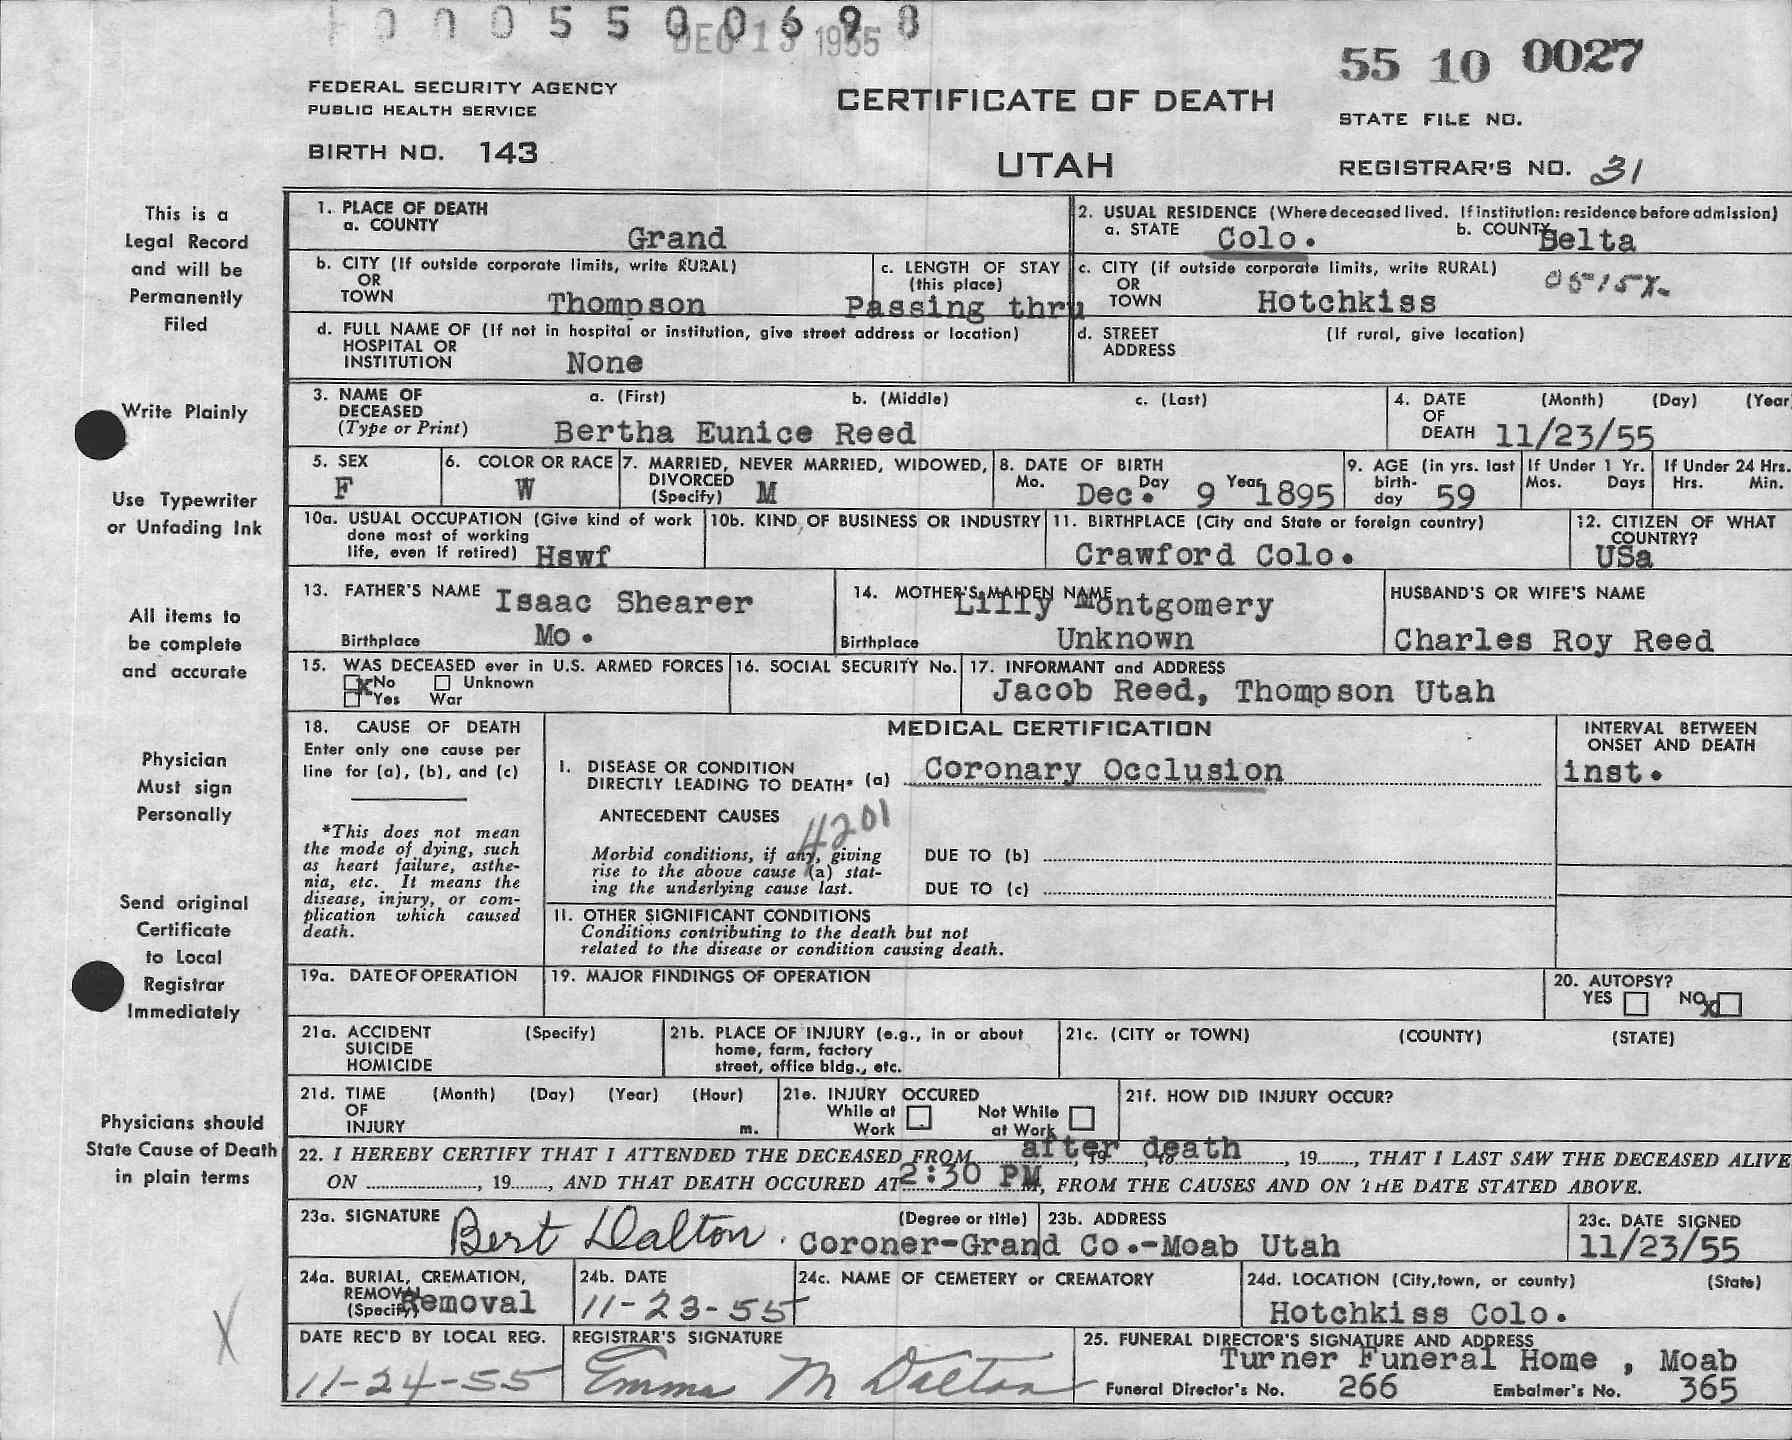 1000550069 8
DEC 13 1955
55 10 0027
FEDERAL SECURITY AGENCY
PUBLIC HEALTH SERVICE
CERTIFICATE OF DEATH
STATE FILE NO.
BIRTH NO. 143
UTAH
REGISTRAR'S NO. 31
This is a
Legal Record
and will be
Permanently
Filed
Write Plainly
Use Typewriter
or Unfading Ink
All items to
be complete
and accurate
Physician
Must sign
Personally
Send original
Certificate
to Local
Registrar
Immediately
Physicians should
State Cause of Death
in plain terms
X
1. PLACE OF DEATH
a. COUNTY Grand
2. USUAL RESIDENCE (Where deceased lived. If institution: residence before admission)
a. STATE Colo. b. COUNTY Delta
b. CITY (If outside corporate limits, write RURAL)
OR
TOWN Thompson
c. LENGTH OF STAY
(this place)
Passing thru
c. CITY (if outside corporate limits, write RURAL)
OR
TOWN Hotchkiss
d. FULL NAME OF (If not in hospital or institution, give street address or location)
HOSPITAL OR
INSTITUTION None
d. STREET (If rural, give location)
ADDRESS
3. NAME OF a. (First) b. (Middle) c. (Last)
DECEASED
(Type or Print) Bertha Eunice Reed
4. DATE (Month) (Day) (Year
OF
DEATH 11/23/55
5. SEX
F
6. COLOR OR RACE
W
7. MARRIED, NEVER MARRIED, WIDOWED,
DIVORCED
(Specify) M
8. DATE OF BIRTH
Mo. Day Year
Dec. 9 1895
9. AGE (in yrs. last
birth-
day 59
If Under 1 Yr.
Mos. Days
If Under 24 Hrs.
Hrs. Min.
10a. USUAL OCCUPATION (Give kind of work
done most of working
life, even if retired) Hswf
10b. KIND OF BUSINESS OR INDUSTRY
11. BIRTHPLACE (City and State or foreign country)
Crawford Colo.
12. CITIZEN OF WHAT
COUNTRY?
USa
13. FATHER'S NAME Isaac Shearer
Birthplace Mo.
14. MOTHER'S MAIDEN NAME
Lilly Montgomery
Birthplace Unknown
HUSBAND'S OR WIFE'S NAME
Charles Roy Reed
15. WAS DECEASED ever in U.S. ARMED FORCES
x No Unknown
Yes War
16. SOCIAL SECURITY No.
17. INFORMANT and ADDRESS
Jacob Reed, Thompson Utah
18. CAUSE OF DEATH
Enter only one cause per
line for (a), (b), and (c)
*This does not mean
the mode of dying, such
as heart failure, asthe-
nia, etc. It means the
disease, injury, or com-
plication which caused
death.
MEDICAL CERTIFICATION
I. DISEASE OR CONDITION
DIRECTLY LEADING TO DEATH* (a) Coronary Occlusion
INTERVAL BETWEEN
ONSET AND DEATH
inst.
ANTECEDENT CAUSES
4201
Morbid conditions, if any, giving
rise to the above cause (a) stat-
ing the underlying cause last.
DUE TO (b)
DUE TO (c)
II. OTHER SIGNIFICANT CONDITIONS
Conditions contributing to the death but not
related to the disease or condition causing death.
19a. DATE OF OPERATION
19. MAJOR FINDINGS OF OPERATION
20. AUTOPSY?
YES NO x
21a. ACCIDENT (Specify)
SUICIDE
HOMICIDE
21b. PLACE OF INJURY (e.g., in or about
home, farm, factory
street, office bldg., etc.
21c. (CITY or TOWN) (COUNTY) (STATE)
21d. TIME (Month) (Day) (Year) (Hour)
OF
INJURY m.
21e. INJURY OCCURED
While at Work Not While at Work
21f. HOW DID INJURY OCCUR?
22. I HEREBY CERTIFY THAT I ATTENDED THE DECEASED FROM after death, 19......, to......, 19......, THAT I LAST SAW THE DECEASED ALIVE
ON ......, 19......, AND THAT DEATH OCCURED AT 2:30 PM, FROM THE CAUSES AND ON THE DATE STATED ABOVE.
23a. SIGNATURE (Degree or title)
Bert Dalton. Coroner-Grand Co.-Moab Utah
23b. ADDRESS
23c. DATE SIGNED
11/23/55
24a. BURIAL, CREMATION,
REMOVAL
(Specify) Removal
24b. DATE
11-23-55
24c. NAME OF CEMETERY or CREMATORY
24d. LOCATION (City, town, or county) (State)
Hotchkiss Colo.
DATE REC'D BY LOCAL REG.
11-24-55
REGISTRAR'S SIGNATURE
Emma M Dalton
25. FUNERAL DIRECTOR'S SIGNATURE AND ADDRESS
Turner Funeral Home , Moab
Funeral Director's No. 266 Embalmer's No. 365